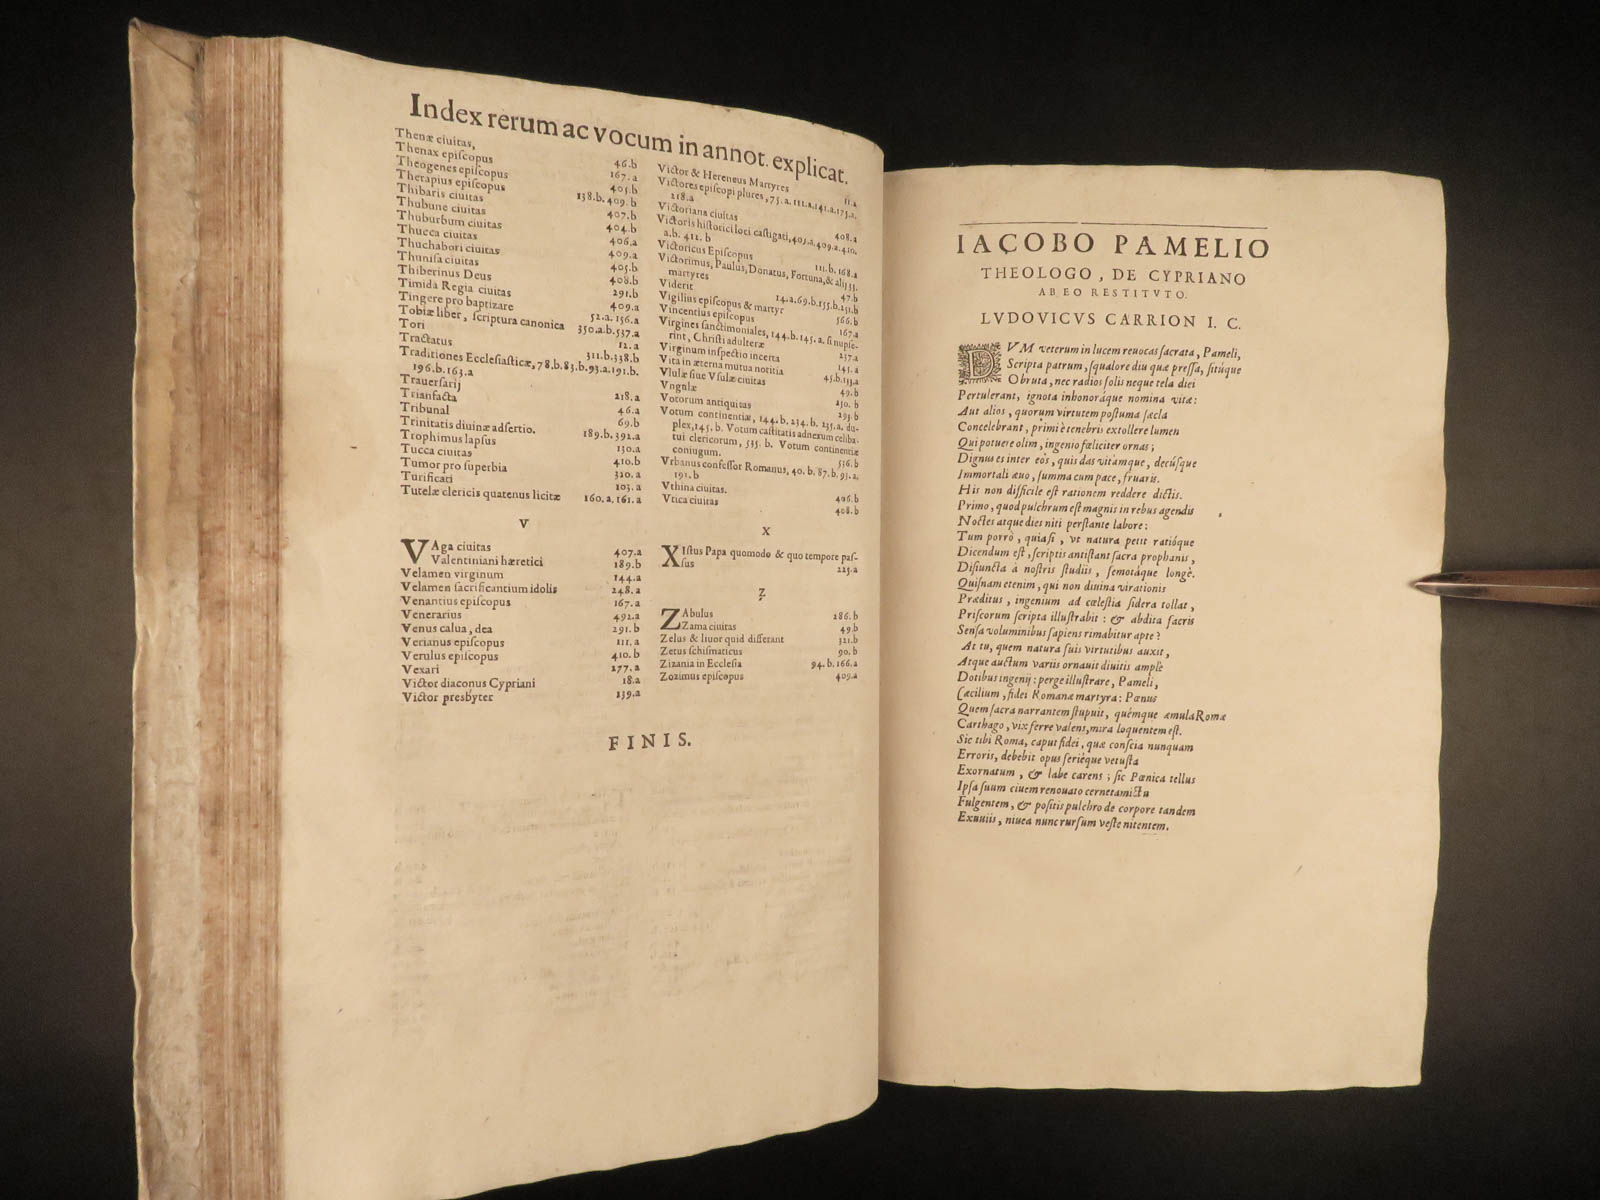 Index rerum ac vocum in annot. explicat.
Thenæ ciuitas, 46.b
Thenax epiſcopus 167.a
Theogenes epiſcopus 405.b
Therapius epiſcopus 138.b. 409.b
Thibaris ciuitas 407.b
Thubune ciuitas 404.b
Thuburbum ciuitas 406.a
Thucca ciuitas 409.a
Thuchabori ciuitas 405.b
Thuniſa ciuitas 408.b
Thiberinus Deus 291.b
Timida Regia ciuitas 409.a
Tingere pro baptizare 52.a. 156.a
Tobiæ liber, ſcriptura canonica 350.a.b. 537.a
Tori 12.a
Tractatus 311.b. 338.b
Traditiones Eccleſiaſticæ, 78.b. 83.b. 93.a. 191.b.
196.b. 163.a
Trauerſarij 218.a
Trianfacta 46.a
Tribunal 69.b
Trinitatis diuinæ adſertio. 189.b. 392.a
Trophimus lapſus 130.a
Tucca ciuitas 410.b
Tumor pro ſuperbia 320.a
Turificati 103.a
Tutelæ clericis quatenus licitæ 160.a. 161.a
V
VAga ciuitas 407.a
Valentiniani hæretici 189.b
Velamen virginum 144.a
Velamen ſacrificantium idolis 248.a
Venantius epiſcopus 167.a
Venerarius 492.a
Venus calua, dea 291.b
Verianus epiſcopus 111.a
Verulus epiſcopus 410.b
Vexari 277.a
Victor diaconus Cypriani 18.a
Victor presbyter 139.a
Victor & Hereneus Martyres 11.a
Victores epiſcopi plures, 75.a. 111.a. 141.a. 175.a.
218.a
Victoriana ciuitas 408.a
Victoris hiſtorici loci caſtigati, 405.a. 409.a. 410.
a.b. 411.b
Victoricus Epiſcopus 111.b. 168.a
Victorimus, Paulus, Donatus, Fortuna, & alij 33.
martyres 47.b
Viderit 14.a. 69.b. 155.b. 251.b
Vigilius epiſcopus & martyr 566.b
Vincentius epiſcopus 167.a
Virgines ſanctimoniales, 144.b. 145.a. ſi nupſe-
rint, Chriſti adulteræ 257.a
Virginum inſpectio incerta 145.a
Vita in æterna mutua notitia 45.b. 353.a
Vlulæ ſiue Vſulæ ciuitas 49.b
Vngulæ 250.b
Votorum antiquitas 295.b
Votum continentiæ, 144.b. 234.b. 235.a. du-
plex, 145.b. Votum caſtitatis adnexum celiba-
tui clericorum, 535.b. Votum continentiæ
coniugum. 536.b
Vrbanus confeſſor Romanus, 40.b. 87.b. 93.a.
191.b
Vthina ciuitas. 406.b
Vtica ciuitas 408.b
X
XIſtus Papa quomodo & quo tempore paſ-
ſus 225.a
Z
ZAbulus 286.b
Zama ciuitas 49.b
Zelus & liuor quid differant 321.b
Zetus ſchiſmaticus 90.b
Zizania in Eccleſia 94.b. 166.a
Zozimus epiſcopus 409.a
FINIS.
IACOBO PAMELIO
THEOLOGO, DE CYPRIANO
AB EO RESTITVTO.
LVDOVICVS CARRION I. C.
DVM veterum in lucem reuocas ſacrata, Pameli,
Scripta patrum, ſqualore diu quæ preſſa, ſitúque
Obruta, nec radios ſolis neque tela diei
Pertulerant, ignota inhonoráque nomina vitæ:
Aut alios, quorum virtutem poſtuma ſæcla
Concelebrant, primi è tenebris extollere lumen
Qui potuere olim, ingenio fœliciter ornas;
Dignus es inter eos, quis das vitámque, decúſque
Immortali æuo, ſumma cum pace, fruaris.
His non difficile eſt rationem reddere dictis.
Primo, quod pulchrum eſt magnis in rebus agendis
Noctes atque dies niti perſtante labore:
Tum porrò, quia ſi, vt natura petit ratióque
Dicendum eſt, ſcriptis antiſtant ſacra prophanis,
Diſiuncta à noſtris ſtudiis, ſemotáque longè.
Quiſnam etenim, qui non diuina virationis
Præditus, ingenium ad cœleſtia ſidera tollat,
Priſcorum ſcripta illuſtrabit: & abdita ſacris
Senſa voluminibus ſapiens rimabitur apte?
At tu, quem natura ſuis virtutibus auxit,
Atque auctum variis ornauit diuitis amplè
Dotibus ingenij: perge illuſtrare, Pameli,
Cæcilium, fidei Romanæ martyra: Pœnus
Quem ſacra narrantem ſtupuit, quémque æmula Romæ
Carthago, vix ferre valens, mira loquentem eſt.
Sic tibi Roma, caput fidei, quæ conſcia nunquam
Erroris, debebit opus ſerièque vetuſta
Exornatum, & labe carens; ſic Pœnica tellus
Ipſa ſuum ciuem renouato cernet amictu
Fulgentem, & poſitis pulchro de corpore tandem
Exuuiis, niuea nunc rurſum veſte nitentem.